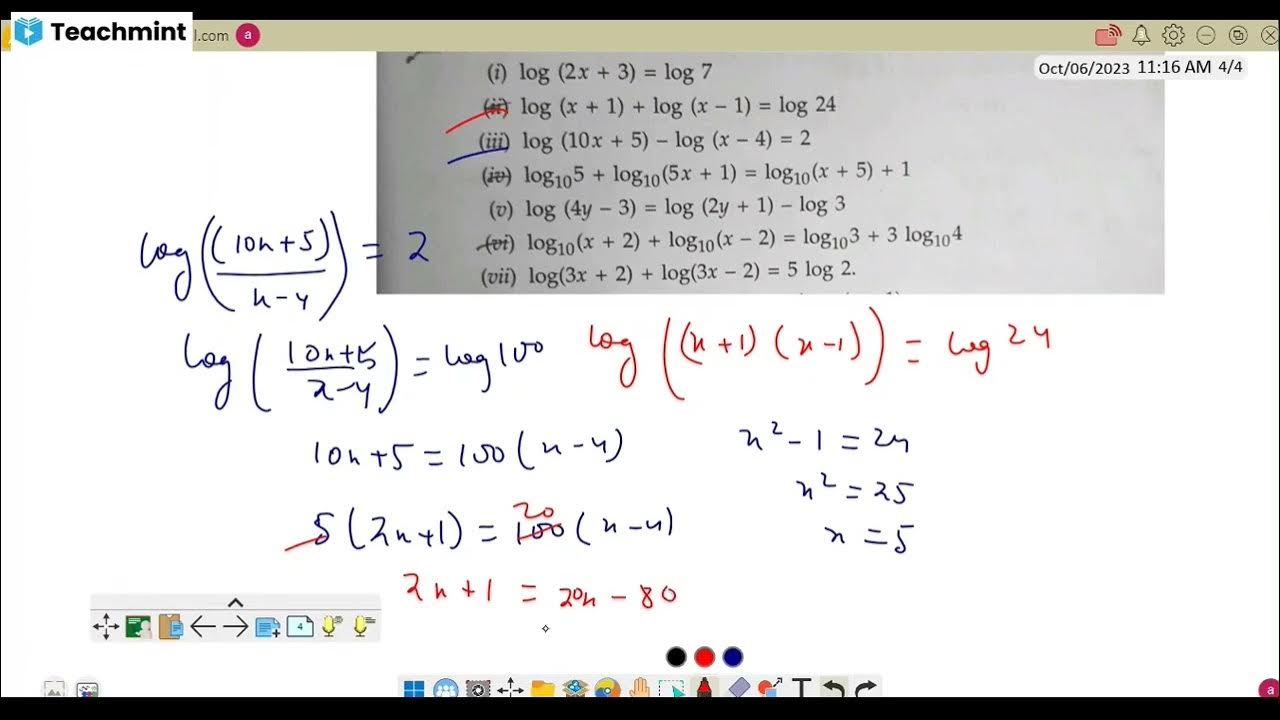 Teachmint
l.com a
Oct/06/2023 11:16 AM 4/4
(i) log (2x + 3) = log 7
(ii) log (x + 1) + log (x − 1) = log 24
(iii) log (10x + 5) − log (x − 4) = 2
(iv) log₁₀5 + log₁₀(5x + 1) = log₁₀(x + 5) + 1
(v) log (4y − 3) = log (2y + 1) − log 3
(vi) log₁₀(x + 2) + log₁₀(x − 2) = log₁₀3 + 3 log₁₀4
(vii) log(3x + 2) + log(3x − 2) = 5 log 2.
log((10x+5)/(x−4)) = 2
log((10x+5)/(x−4)) = log 100
10x+5 = 100(x−4)
5(2x+1) = 100(x−4)
20
2x+1 = 20x − 80
log((x+1)(x−1)) = log 24
x²−1 = 24
x² = 25
x = 5
4
T
a